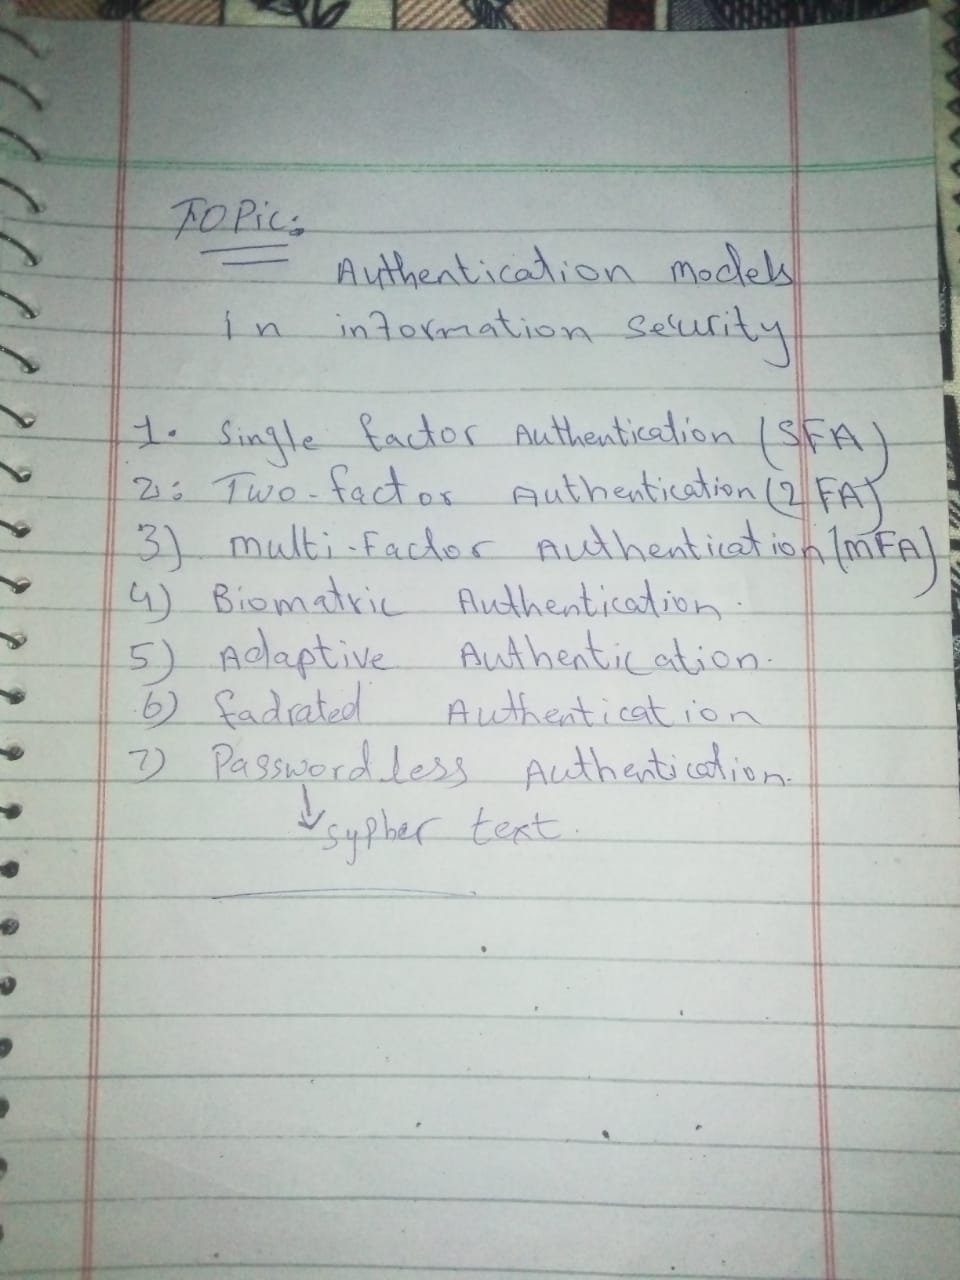 Topic:
Authentication models
in information security
1. Single factor Authentication (SFA)
2: Two-factor Authentication (2FA)
3) multi-Factor Authentication (mFA)
4) Biomatric Authentication.
5) Adaptive Authentication.
6) fadrated Authentication
7) Passwordless Authentication.
↓ sypher text.